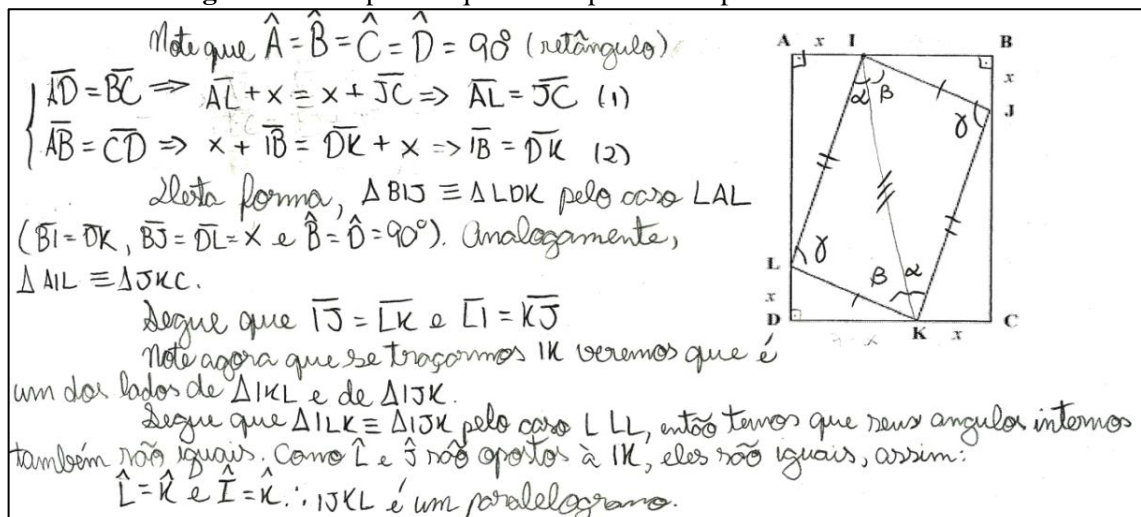 Note que Â = B̂ = Ĉ = D̂ = 90° (retângulo)
{ AD̅ = BC̅ ⇒ AL̅ + x = x + JC̅ ⇒ AL̅ = JC̅ (1)
{ AB̅ = CD̅ ⇒ x + IB̅ = DK̅ + x ⇒ IB̅ = DK̅ (2)
Desta forma, ΔBIJ ≡ ΔLDK pelo caso LAL
(BI̅ = DK̅, BJ̅ = DL̅ = x e B̂ = D̂ = 90°). Analogamente,
ΔAIL ≡ ΔJKC.
Segue que IJ̅ = LK̅ e LI̅ = KJ̅
Note agora que se traçarmos IK veremos que é
um dos lados de ΔIKL e de ΔIJK.
Segue que ΔILK ≡ ΔIJK pelo caso LLL, então temos que seus angulos internos
também são iguais. Como L̂ e Ĵ são opostos à IK, eles são iguais, assim:
L̂ = K̂ e Î = K̂ ∴ IJKL é um paralelogramo.
A x I B
x
α β
J
γ
L γ
β α
x
D K x C